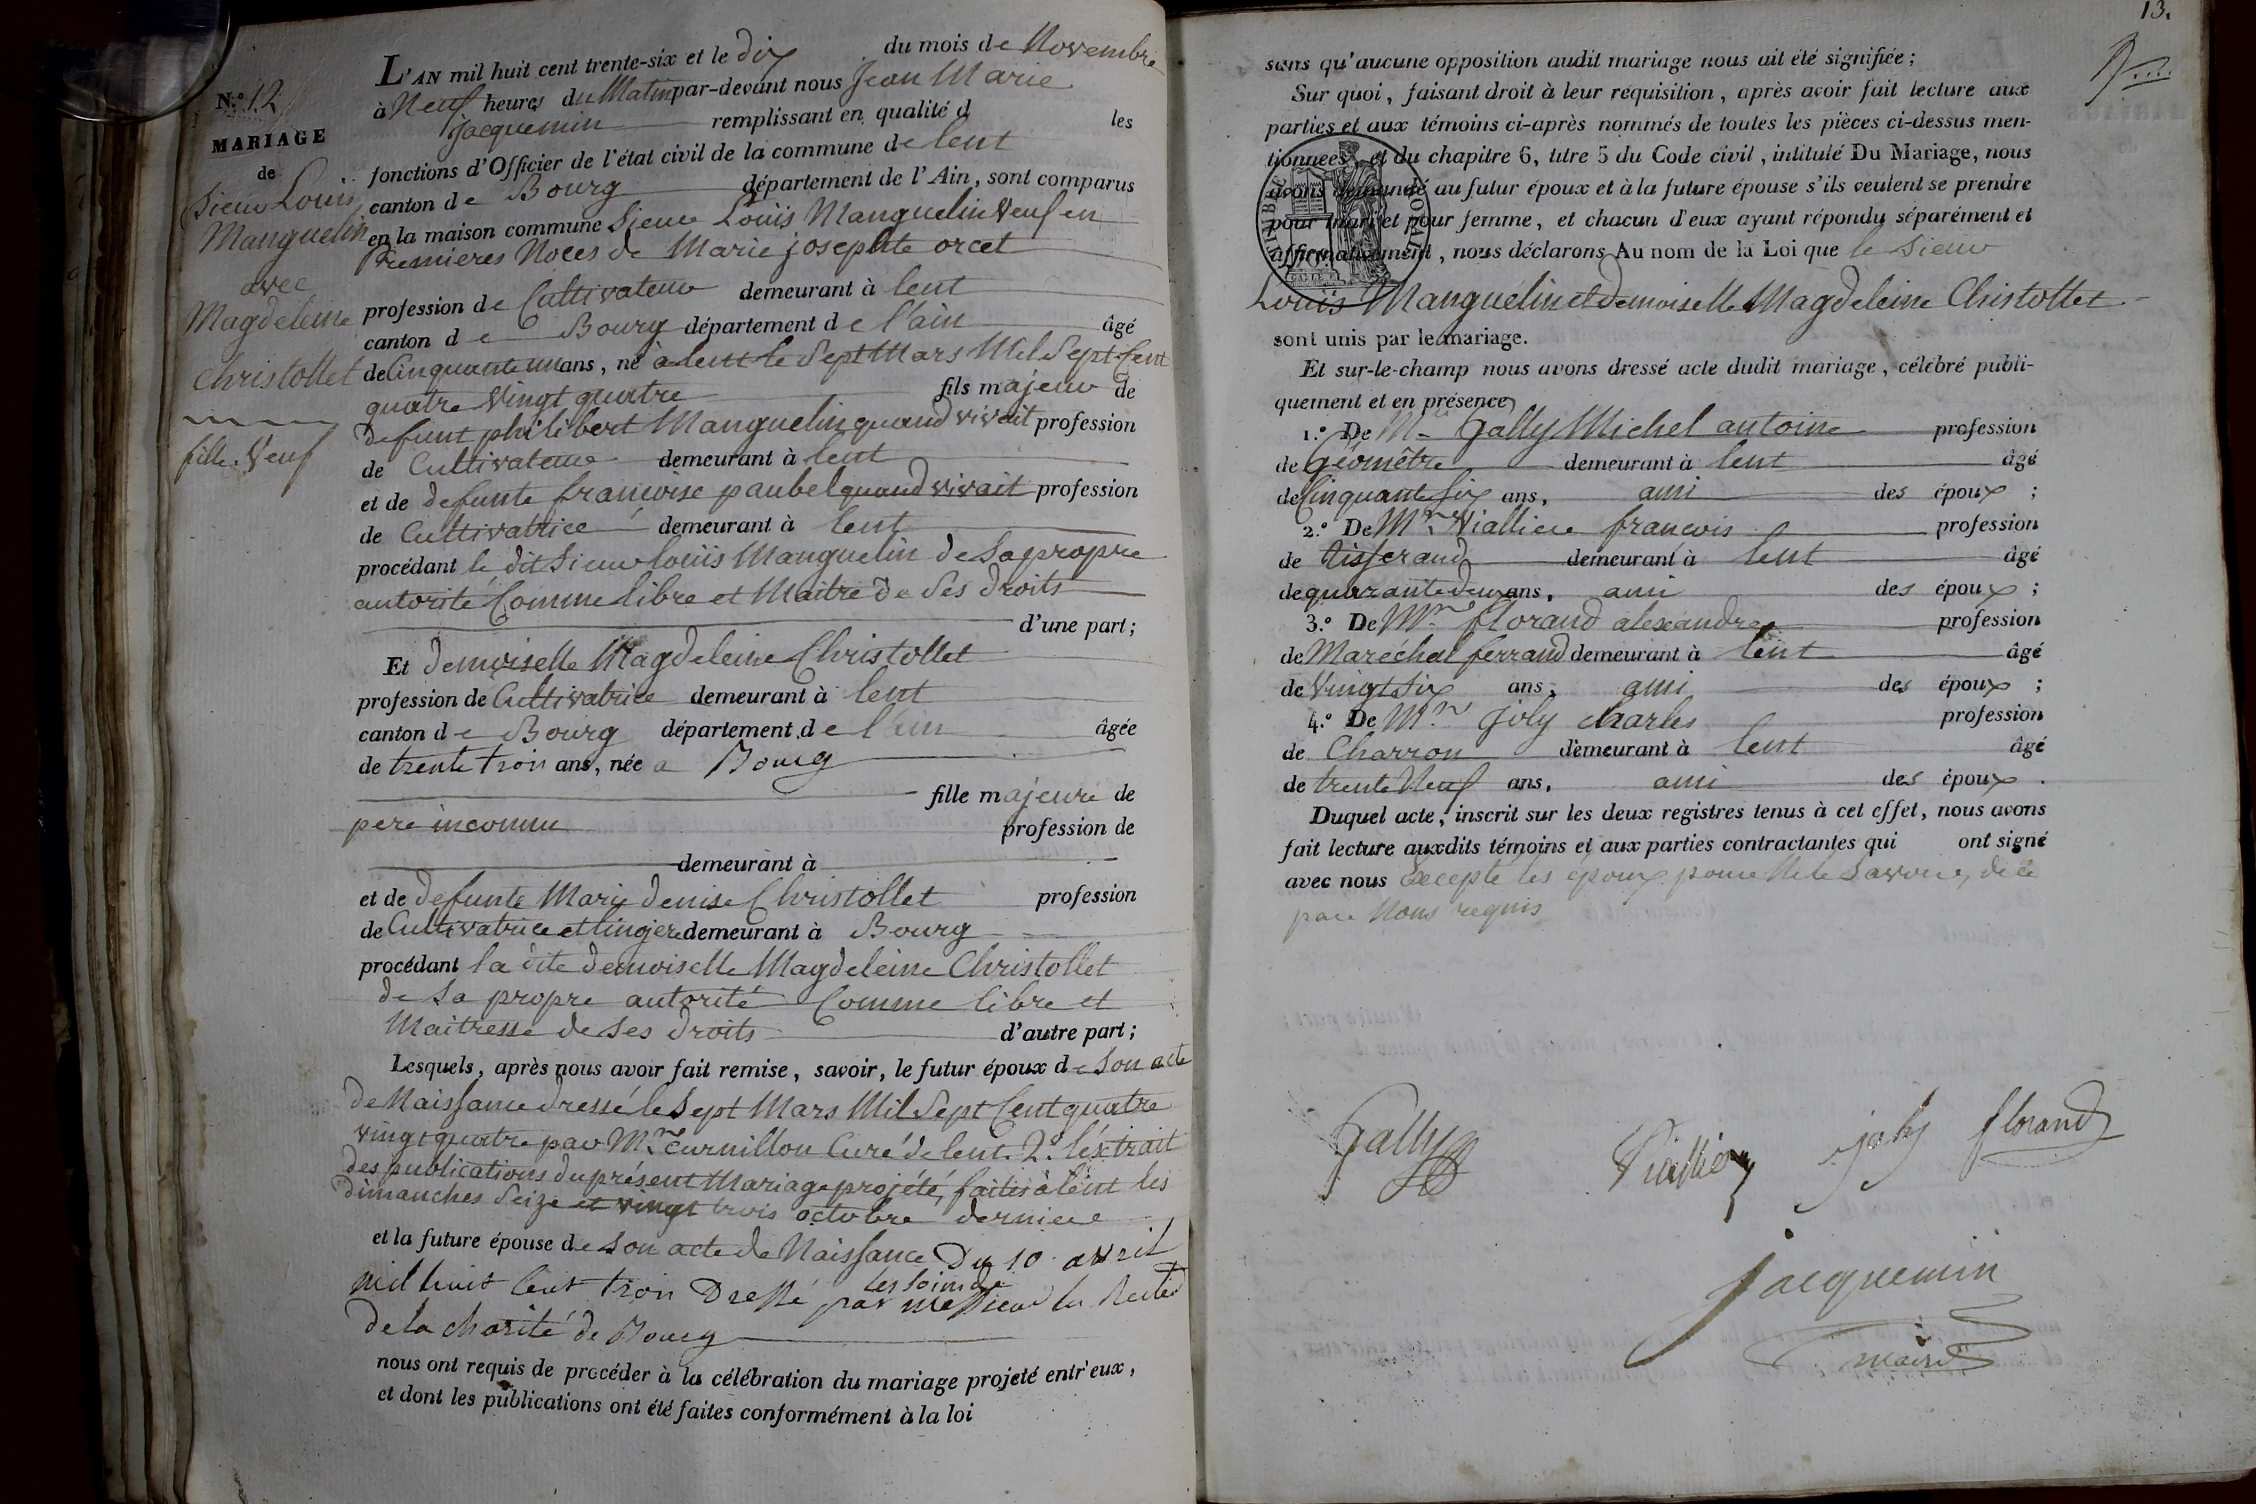 N.º 12
MARIAGE
de
Sieur Louis
Manguelin
avec
Magdeleine
Christollet
fille. Veuf
L'AN mil huit cent trente-six et le dix du mois de Novembre
à Neuf heures du Matin par-devant nous Jean Marie
Jacquemin remplissant en qualité d les
fonctions d'Officier de l'état civil de la commune de lent
canton de Bourg département de l'Ain, sont comparus
en la maison commune Sieur Louis Manguelin Veuf en
Premières Noces de Marie josephte orcet
profession de Cultivateur demeurant à lent
canton de Bourg département de l'ain âgé
de Cinquante un ans, né à lent le Sept Mars Mil Sept Cent
quatre Vingt quatre fils majeur de
defunt philibert Manguelin quand vivait profession
de Cultivateur demeurant à lent
et de defunte francoise paubel quand vivait profession
de Cultivatrice demeurant à lent
procédant le dit Sieur louis Manguelin de Sa propre
autorité Comme libre et Maitre de Ses droits
d'une part;
Et demoiselle Magdeleine Christollet
profession de Cultivatrice demeurant à lent
canton de Bourg département de l'ain âgée
de trente trois ans, née a Bourg
fille majeure de
pere inconnu profession de
demeurant à
et de defunte Marie denise Christollet profession
de Cultivatrice et lingere demeurant à Bourg
procédant la dite demoiselle Magdeleine Christollet
de Sa propre autorité Comme libre et
Maitresse de Ses droits d'autre part;
Lesquels, après nous avoir fait remise, savoir, le futur époux de Son acte
de Naissance dressé le Sept Mars Mil Sept Cent quatre
vingt quatre par Mr. Curnillon Curé de lent. 2.º l'extrait
des publications du présent Mariage projété, faites à lent les
dimanches Seize et vingt trois octobre derniere
et la future épouse de Son acte de Naissance Du 10 avril
mil huit Cent trois Dressé par les soins de Messieurs les
de la charité de Bourg
nous ont requis de procéder à la célébration du mariage projeté entr'eux,
et dont les publications ont été faites conformément à la loi
13.
sans qu'aucune opposition audit mariage nous ait été signifiée;
Sur quoi, faisant droit à leur requisition, après avoir fait lecture aux
parties et aux témoins ci-après nommés de toutes les pièces ci-dessus men-
tionnées, et du chapitre 6, titre 5 du Code civil, intitulé Du Mariage, nous
avons demandé au futur époux et à la future épouse s'ils veulent se prendre
pour mari et pour femme, et chacun d'eux ayant répondu séparément et
affirmativement, nous déclarons Au nom de la Loi que le Sieur
Louis Manguelin et demoiselle Magdeleine Christollet
sont unis par le mariage.
Et sur-le-champ nous avons dressé acte dudit mariage, célébré publi-
quement et en présence
1.º De Mr. Gally Michel antoine profession
de Géomètre demeurant à lent âgé
de Cinquante Six ans, ami des époux;
2.º De Mr. Viallier francois profession
de tisserand demeurant à lent âgé
de quarante deux ans, ami des époux;
3.º De Mr. florand alexandre profession
de Maréchal ferrand demeurant à lent âgé
de Vingt Six ans, ami des époux;
4.º De Mr. Joly charles profession
de Charron demeurant à lent âgé
de trente Neuf ans, ami des époux.
Duquel acte, inscrit sur les deux registres tenus à cet effet, nous avons
fait lecture auxdits témoins et aux parties contractantes qui ont signé
avec nous Excepté les époux pour Ne le Savoir, de ce
par Nous requis
Gally Viallier joly florand
jacquemin
maire